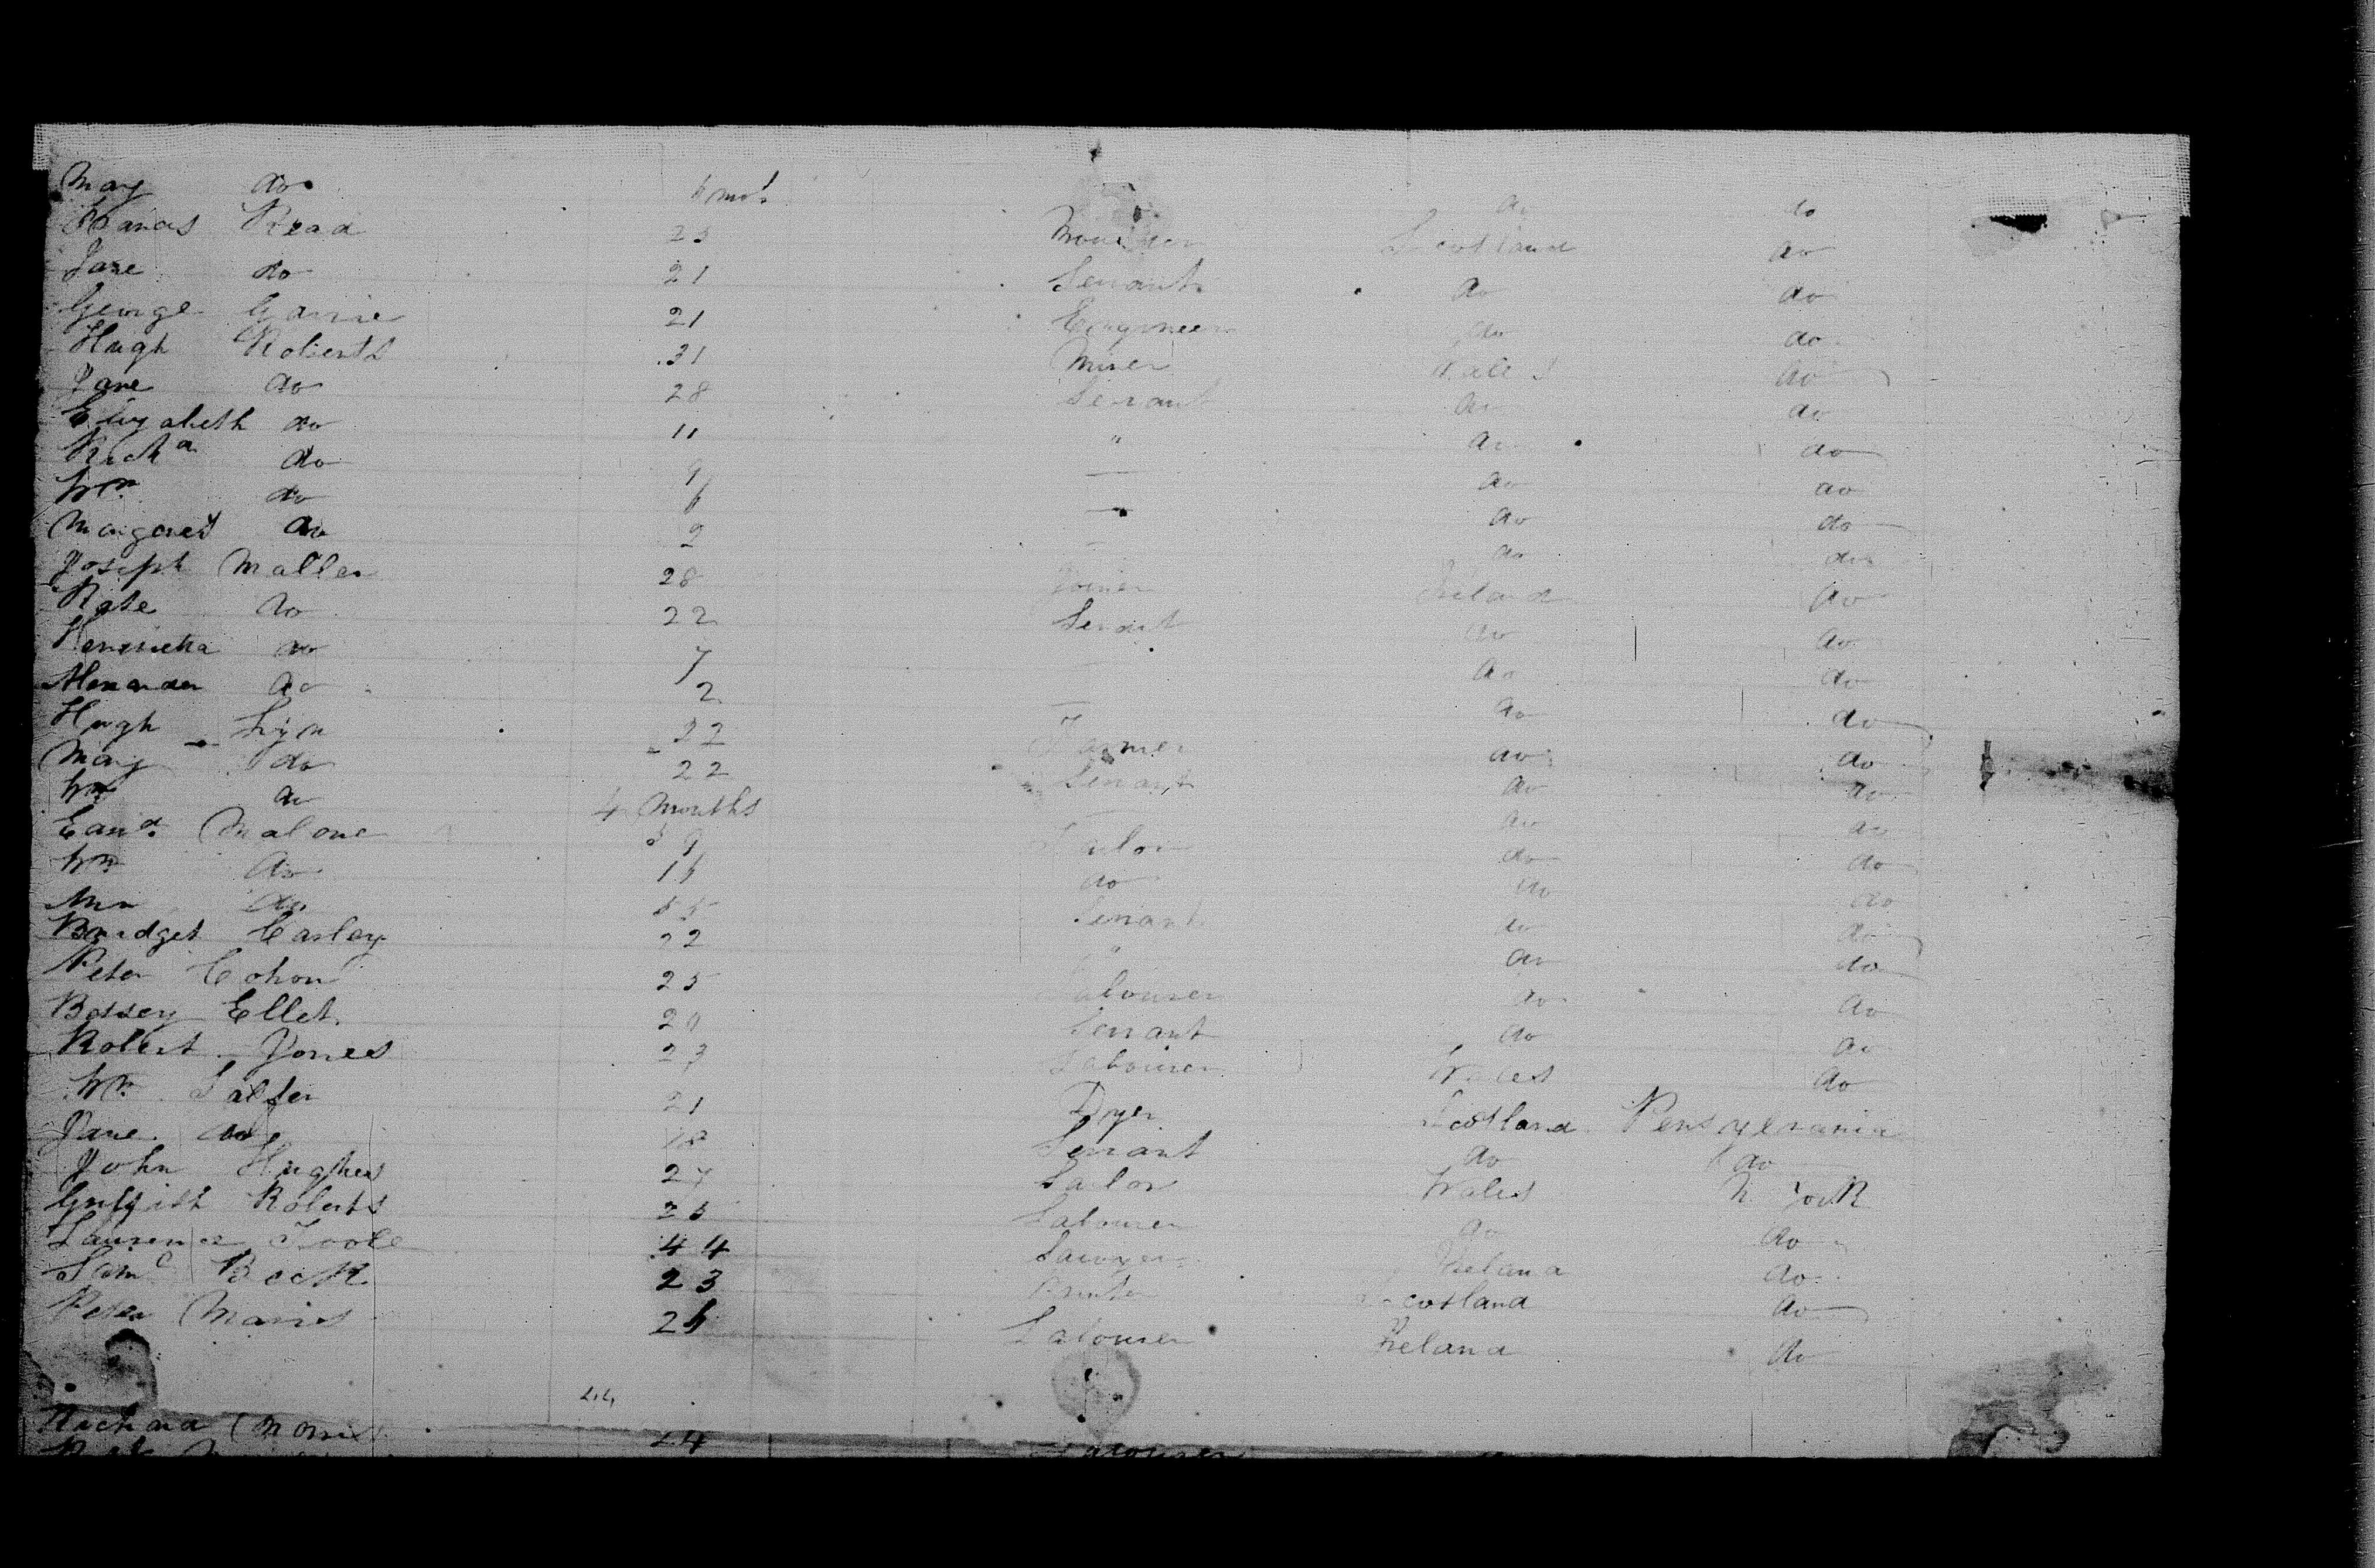 Mary do 6 mos do do
Francis Read 23 Scotland do
Jane do 21 Servant do do
George Garvie 21 Engineer do do
Hugh Roberts 31 Miner Wales do
Jane do 28 Servant do do
Elizabeth do 11 " do do
Richd do 9 — do do
Wm do 6 — do do
Margaret do 2 — do do
Joseph Maller 28 Joiner Ireland do
Kate do 22 Servant do do
Henrietta do 7 — do do
Alexander do 2 — do do
Hugh Lyn 22 Farmer do do
Mary do 22 Servant do do
Wm do 4 Months — do do
Edwd Malone 59 Tailor do do
Wm do 16 do do do
Ann do 55 Servant do do
Bridget Carley 22 " do do
Peter Cohon 25 Labourer do do
Bessey Ellet 20 Servant do do
Robert Jones 27 Labourer Wales do
Wm Salter 21 Dyer Scotland Pensylvania
Jane do 18 Servant do do
John Hughes 27 Sailor Wales N York
Griffith Roberts 25 Labourer do do
Laurence Toole 44 Sawyer Ireland do
Saml Beck 23 Printer Scotland do
Peter Marris 26 Labourer Ireland do
44
Richard Morris 24 Labourer